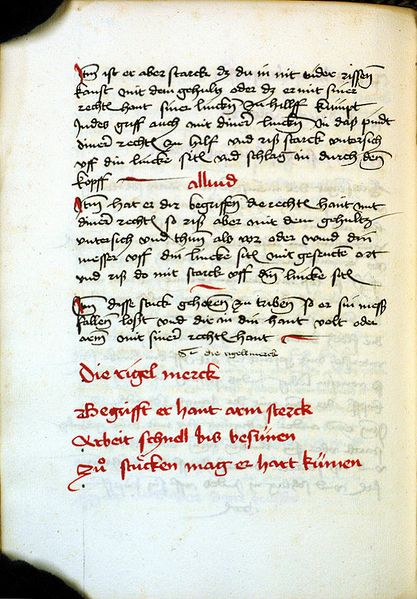 Itm ist er aber starck dz du in nit nider rissen
kanst mit dem gehultz oder dz er mit siner
rechten hant siner lincken zu hillff kumpt
Indes griff auch mit diner lincken in daß pindt
diner rechten zu hilf und riß starck untersich
uff din lincke siten und schlag in durch den
kopff
allund
Itm hat er dir begriffen die rechten hant mit
diner rechten so riß aber mit dem gehultz
untersich und thun als vor oder wind din
messer uff din lincke siten mit gestrackten ort
und riß do mit starck uff din lincke siten
Itm disse stuck gehoren zu triben so er sin mess
fallen lost und die in din hant volt oder
arm mit siner rechten hant
die rigel merck
Die rigel merck
Begrifft er hant arm sterck
Arbeit schnell bis besunen
Zů stucken mag er hart kumen